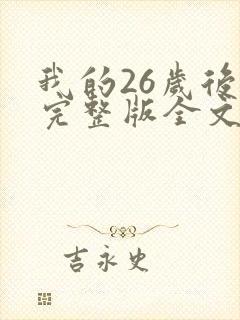 我的26歲後
完整版全文
吉永史